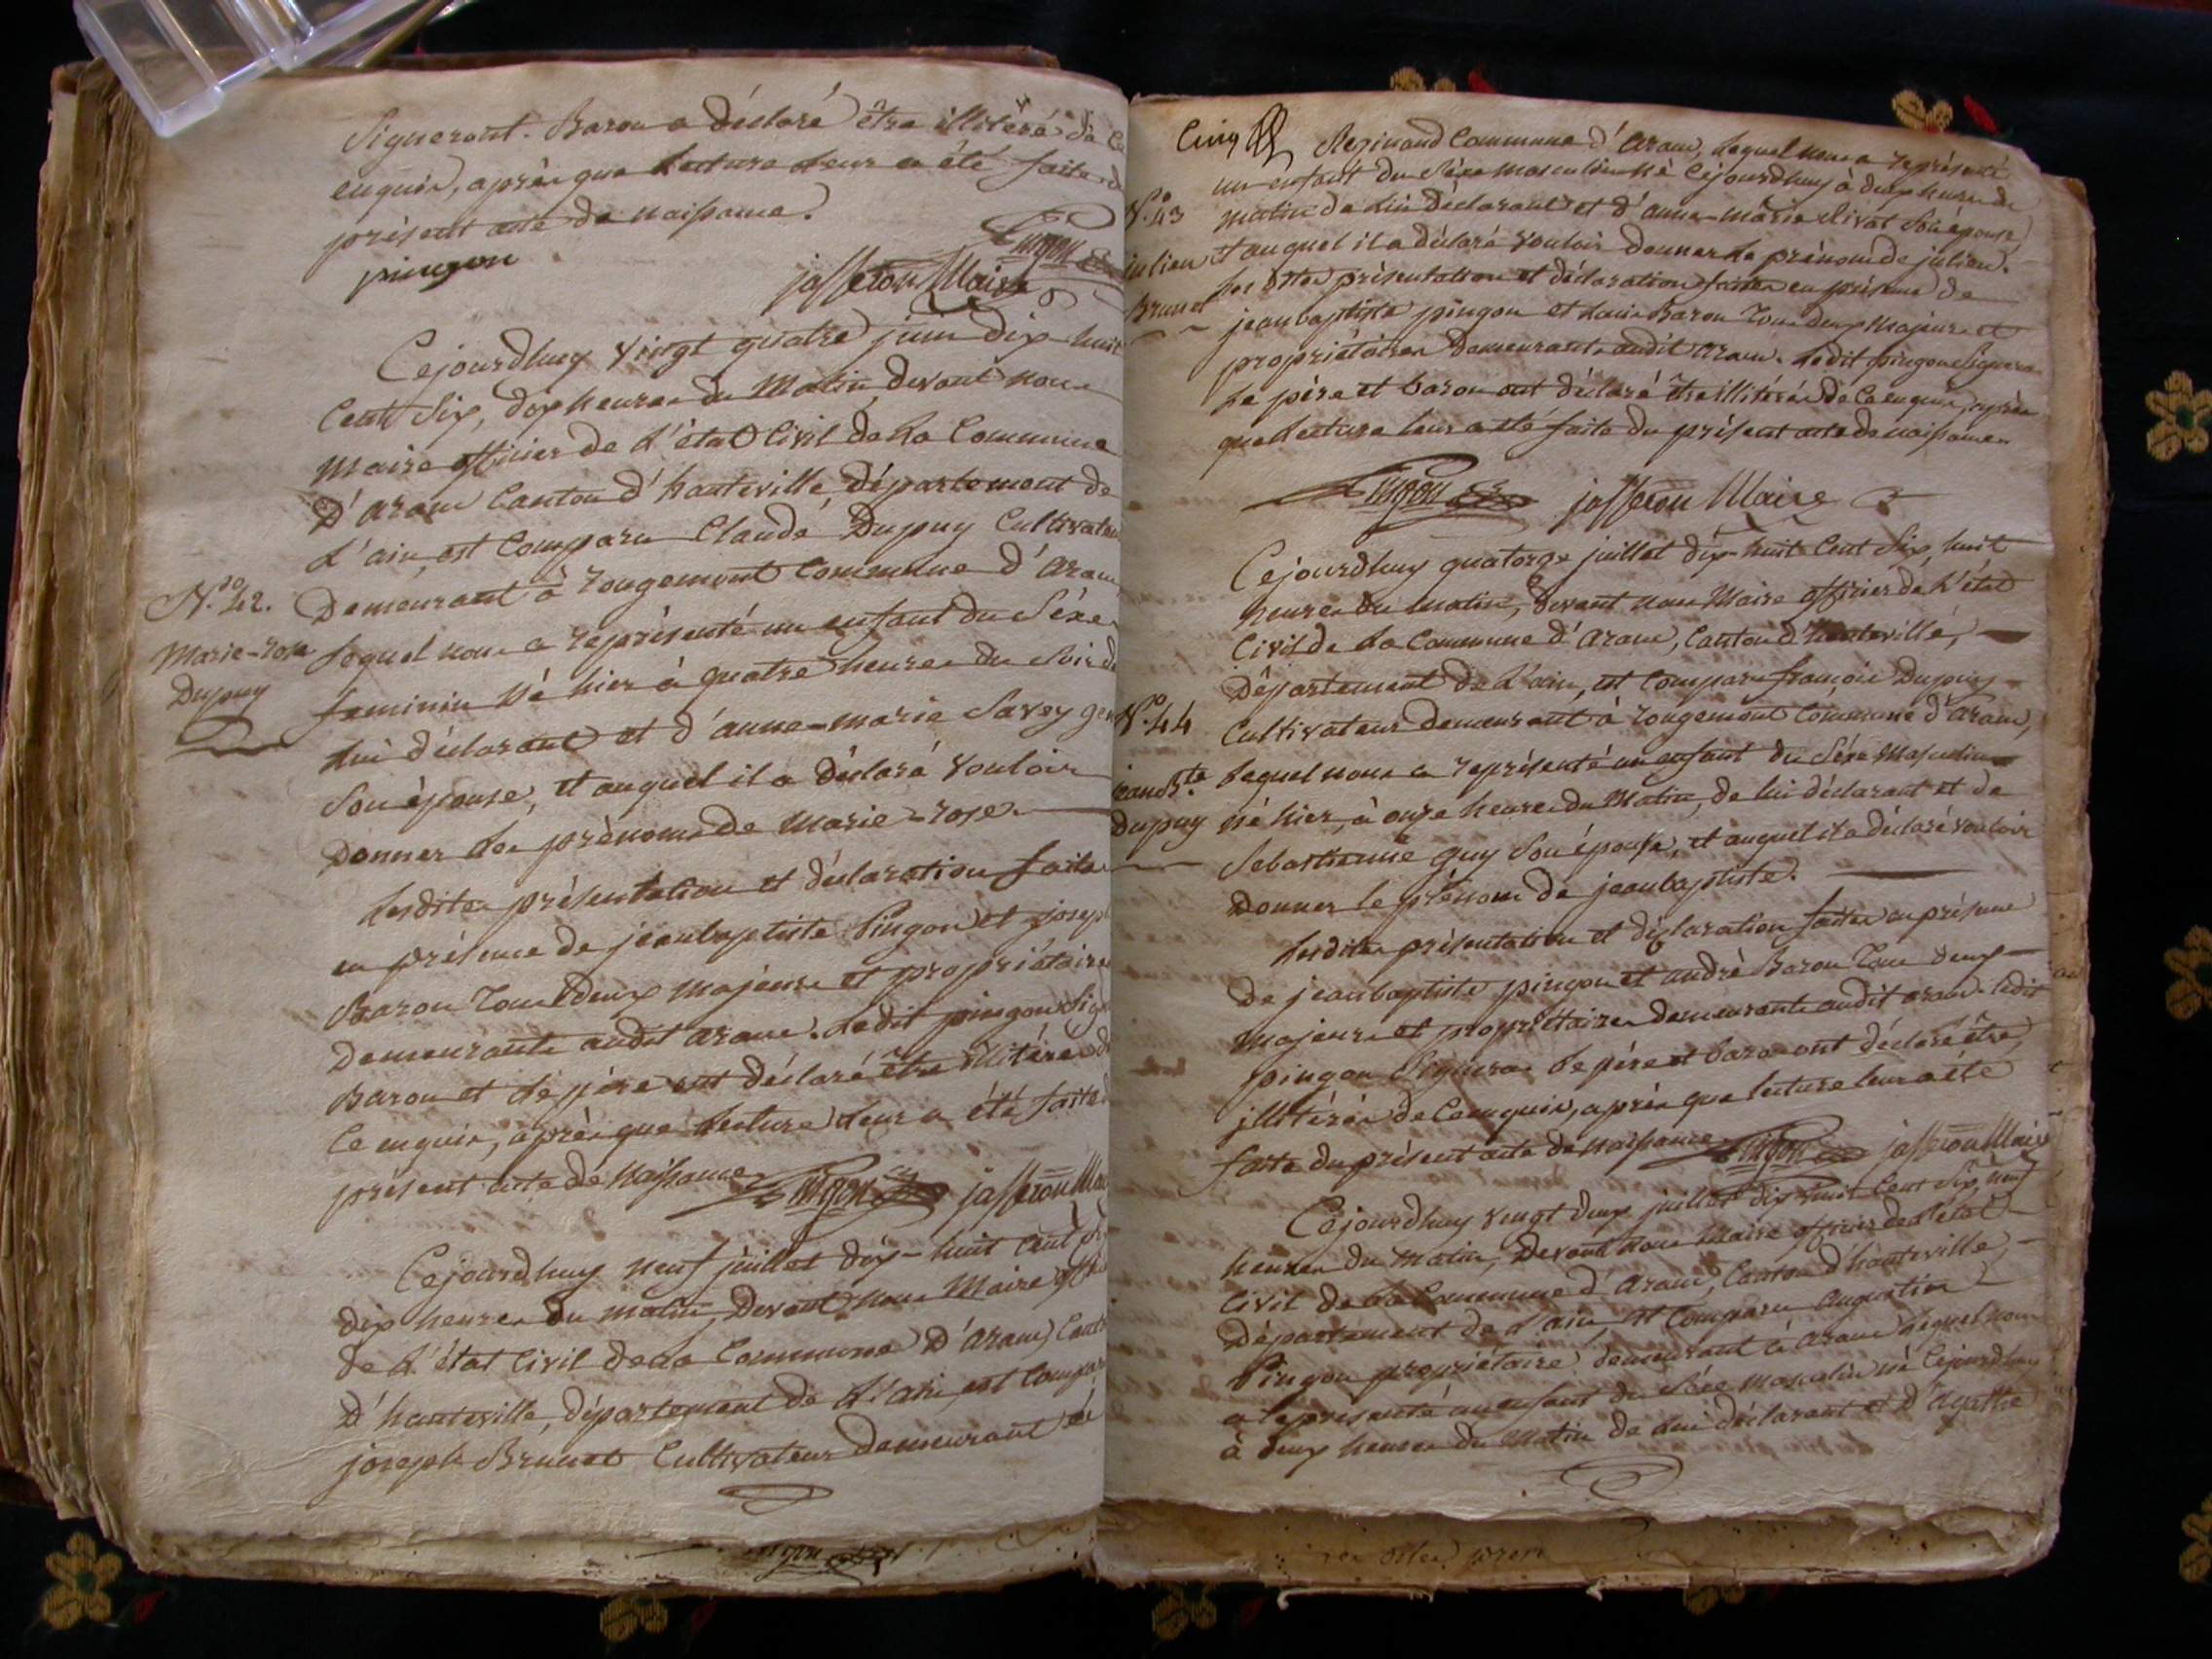 Signeront. Baron a déclaré être illitéré de ce
enquis, après que lecture leur a été faite du
présent acte de naissance.
pingon
Pingon
jasseron Maire
Cejourdhuy vingt quatre juin dix-huit
Cent Six, dix heures du Matin, devant nous
Maire officier de L'état Civil de La Commune
D'aranc Canton d'hauteville, département de
L'ain, est Comparu Claude Dupuy Cultivateur
N.º 42.
Marie-rose
Dupuy
Demeurant à rougemont Commune d'aranc
Lequel nous a représenté un enfant du Séxe
feminin Né hier à quatre heures du Soir de
Lui déclarant et d'anne-marie Savey
Son épouse, et auquel il a déclaré vouloir
Donner Les prénoms de Marie-rose.
Lesdites présentation et déclaration faites
en présence de jeanbaptiste Pingon et joseph
Baron Tous deux majeurs et propriétaires
Demeurants audit aranc. Ledit pingon
Baron et Le père ont déclaré être illitérés de
Ce enquis, après que Lecture Leur a été faite
présent acte de Naissance. Pingon jasseron
Cejourdhuy neuf juillet dix-huit cent Six
dix heures du matin, Devant nous Maire
de L'état Civil de La Commune D'aranc, Canton
D'hauteville, département de L'ain, est Comparu
joseph Brunet Cultivateur Demeurant à
Cinq
Reginand Commune d'aranc, Lequel nous a représenté
un enfant du Séxe masculin Né Cejourdhuy à deux heures du
N.º 43
julien
Brunet
matin de Lui déclarant et d'anne-marie Livat Son épouse
et auquel il a déclaré vouloir donner Le prénom de julien.
Lesdites présentation et déclaration faites en présence de
jeanbaptiste pingon et Louis Baron Tous deux Majeurs et
propriétaires Demeurants audit aranc. Ledit pingon Signera
Le père et baron ont déclaré être illitérés de Ce enquis, après
que Lecture leur a été faite du présent acte de naissance
Pingon jasseron Maire
Cejourdhuy quatorze juillet dix-huit Cent Six, huit
heures du matin, devant nous Maire officier de L'état
Civil de La Commune d'aranc, Canton d'hauteville,
Département de L'ain, est Comparu françois Dupuy
N.º 44
jean B.te
Dupuy
Cultivateur demeurant à rougemont Commune d'aranc,
Lequel nous a représenté un enfant du Séxe Masculin
né hier, à onze heures du Matin, de lui déclarant et de
Sebastienne Guy Son épouse, et auquel il a déclaré vouloir
Donner le prénom de jeanbaptiste.
Lesdites présentation et déclaration faites en présence
de jeanbaptiste pingon et andré Baron Tous deux
majeurs et propriétaires demeurants audit aranc. ledit
pingon Signera Le père et baron ont déclaré être
illitérés de Ce enquis, après que lecture leur a été
faite du présent acte de naissance. Pingon jasseron Maire
Cejourdhuy vingt deux juillet dix huit Cent Six, neuf
heures du matin, Devant nous Maire officier de L'état
Civil de La Commune d'aranc, Canton d'hauteville,
Département de L'ain, est Comparu augustin
Pingon propriétaire demeurant à aranc Lequel nous
a représenté un enfant du Séxe masculin né Cejourdhuy
à deux heures du Matin de Lui déclarant et d'agathe